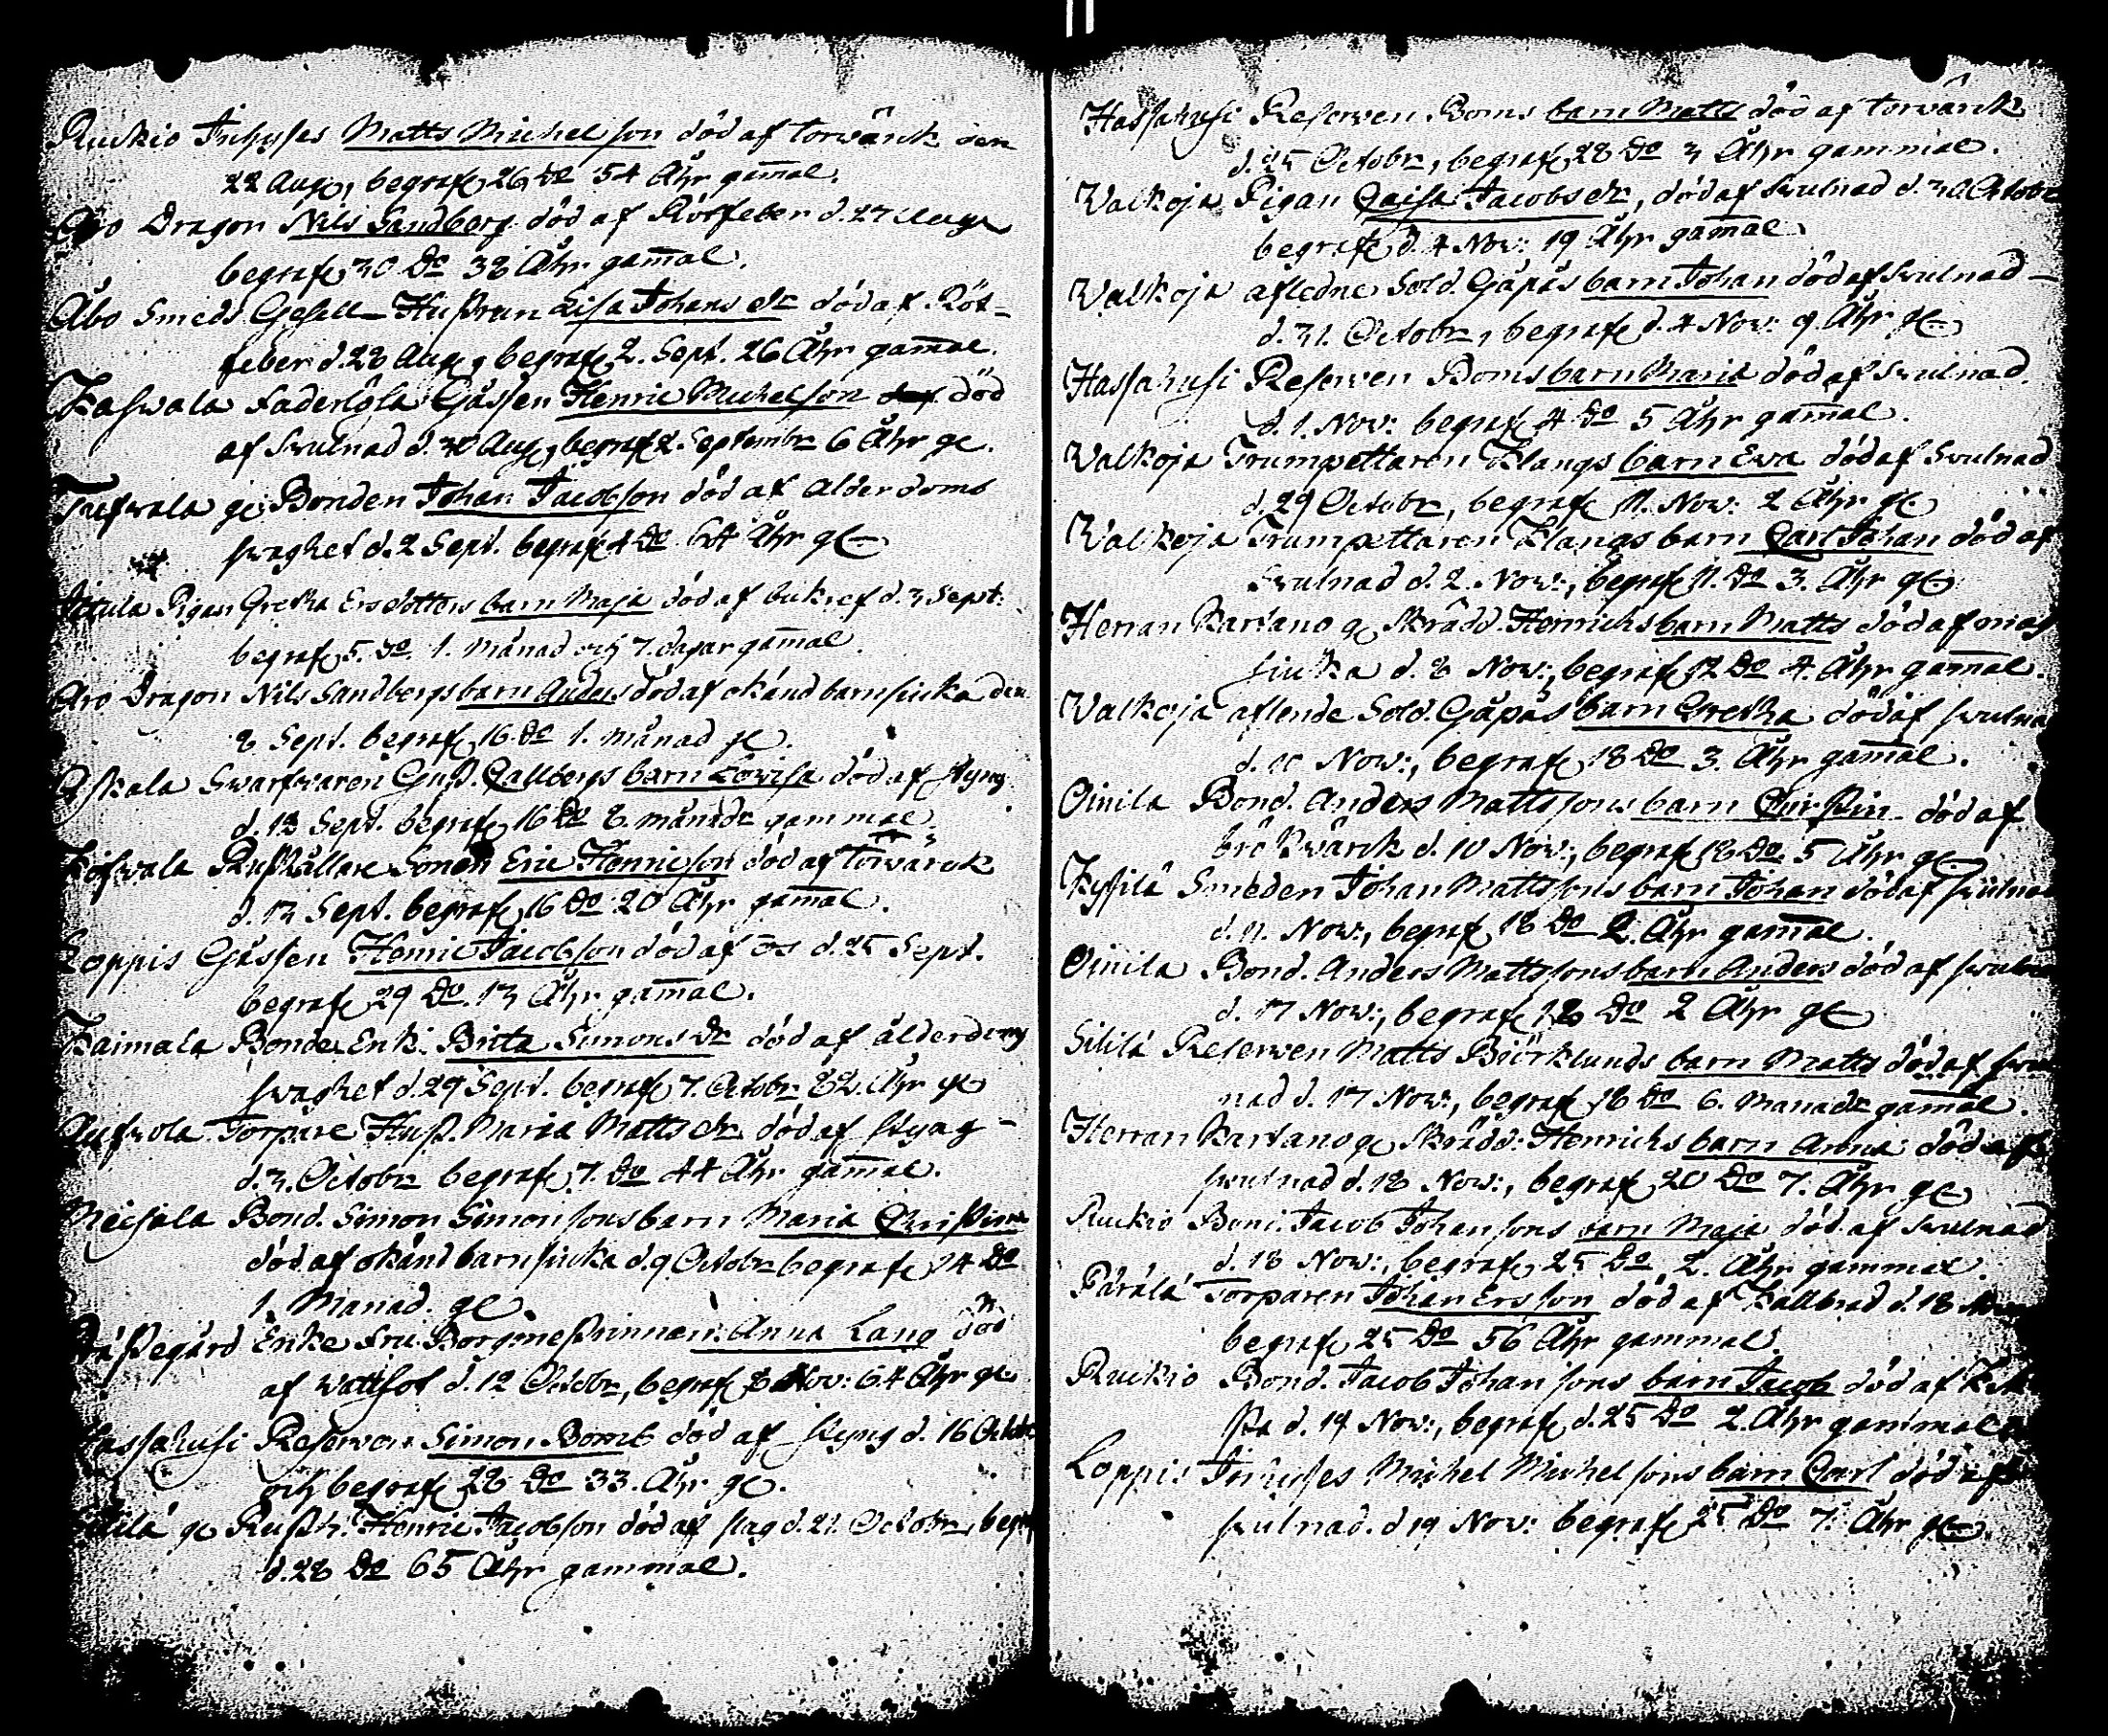 Ruckio Inhyses Matts Michelson död af torwärck den
22 Aug, begrafn 26 Do 54 Åhr gamal.
Aro Dragon Nils Sandberg död af Rötfeber d. 27 Aug
begrafn 30 Do 38 Åhr gamal.
Åbo Smeds Gesell Hustrun Lisa Johans dr död af Röt-
feber d. 28 Aug, begrafn 2. Sept. 26 Åhr gamal.
faderlösa Gåssen Henric Michelson död
af Swulnad d. 30 Aug, begrafn 2. Septembr 6 Åhr ge.
ge Bonden Johan Jacobson död af alderdoms
swaghet d. 2 Sept. begrafn 4 Do 64 Åhr ge
Pigan Gretha Ersdotters barn Maja död af bukref d. 3 Sept:
begrafn 5. Do 1. Månad och 7. dagar gamal.
Aro Dragon Nils Sandbergs barn Anders död af okänd barnsiuka den
8 Sept. begrafn 16 Do 1. Månad ge.
Swarfwaren Gust. Callbergs barn Lowisa död af styng
d. 13 Sept. begrafn 16 Do 8. månadr gammal.
Rusthållare Sonen Eric Henricson död af Torwärck
d. 13 Sept. begrafn 16 Do 20 Åhr gamal.
Loppis Gåssen Henric Jacobson död af d. 25 Sept.
begrafn 29 Do 13 Åhr gamal.
Kaimala Bonde Enk. Britta Simons dr död af ålderdoms
swaghet d. 29 Sept. begrafn 7. Octobr 82. Åhr ge
Torpare Hust. Maria Matts dr död af styng -
d. 3. Octobr begrafn 7. Do 44 Åhr gamal.
Bond. Simon Simonsons barn Maria Christina
död af okänd barnsiuka d. 9 Octobr begrafn 14 Do
1. Månad. ge.
Enke Fru Borgmestrinnan Anna Lang död
af Wattsot d. 12 Octobr, begrafn 8 Nov: 64 Åhr ge
Hassahusi Reserven Simon Boms död af styng d. 16 Octobr
och begrafn 28 Do 33. Åhr ge.
ge Rusth. Henric Jacobson död af slag d. 21. Octobr, begrafn
d. 28 Do 65 Åhr gammal.
Hassahusi Reserven Boms barn Matts död af torwärck
d. 25 Octobr, begrafn 28 Do 3 Åhr gammal.
Walkoja Pigan Caisa Jacobs dr, död af Swulnad d. 30 Octobr
begrafn d. 4 Nov: 19 Åhr gamal
Walkoja afledne Sold. Gåpås barn Johan död af Swulnad -
d. 31. Octobr, begrafn d. 4 Nov: 9. Åhr ge
Hassahusi Reserven Boms barn Maria död af Swulnad.
d. 1. Nov: begrafn 4 Do 5 Åhr gamal.
Walkoja Trumpettaren Klangs barn Ewa död af Swulnad
d. 29 Octobr, begrafn 11. Nov: 2 Åhr ge
Walkoja Trumpettaren Klangs barn Carl Johan död af
Swulnad d. 2. Nov:, begrafn 11. Do 3. Åhr ge
Herran Kartano ge Skrädd. Henrichs barn Matts död af
siuka d. 8 Nov:, begrafn 12 Do 4. Åhr gamal.
Walkoja aflende Sold. Gåpås barn Gretha död af swulna
d. 11 Nov:, begrafn 18 Do 3. Åhr gamal.
Oinila Bond. Anders Mattssons barn Christin död af
bröstwärck d. 10 Nov:, begrafn 18 Do 5 Åhr ge
Smeden Johan Mattssons barn Johan död af swulnad
d. 11. Nov:, begrafn 18 Do 2. Åhr gamal.
Oinila Bond. Anders Mattssons barn Anders död af swulnad
d. 17 Nov:, begrafn 18 Do 2 Åhr ge
Sililä Reserven Matts Biörklunds barn Matts död af swul
nad d. 17 Nov:, begrafn 18 Do 6. Manadr gamal.
Herran Kartano ge Skrädd. Henrichs barn Anna död af
swulnad d. 18 Nov:, begrafn 20 Do 7. Åhr ge
Ruckio Bond. Jacob Johansons barn Maja död af Swulnad
d. 18 Nov:, begrafn 25 Do 2. Åhr gammal.
Pärälä Torparen Johan Ersson död af Kallbrad d. 18 Nov
begrafn 25 Do 56 Åhr gammal.
Ruckio Bond. Jacob Johansons barn Jacob död af
d. 19 Nov:, begrafn d. 25 Do 2. Åhr gammal
Loppis Inhyses Michel Michelsons barn Carl död af
swulnad. d 19 Nov: begrafn 25 Do 7. Åhr ge